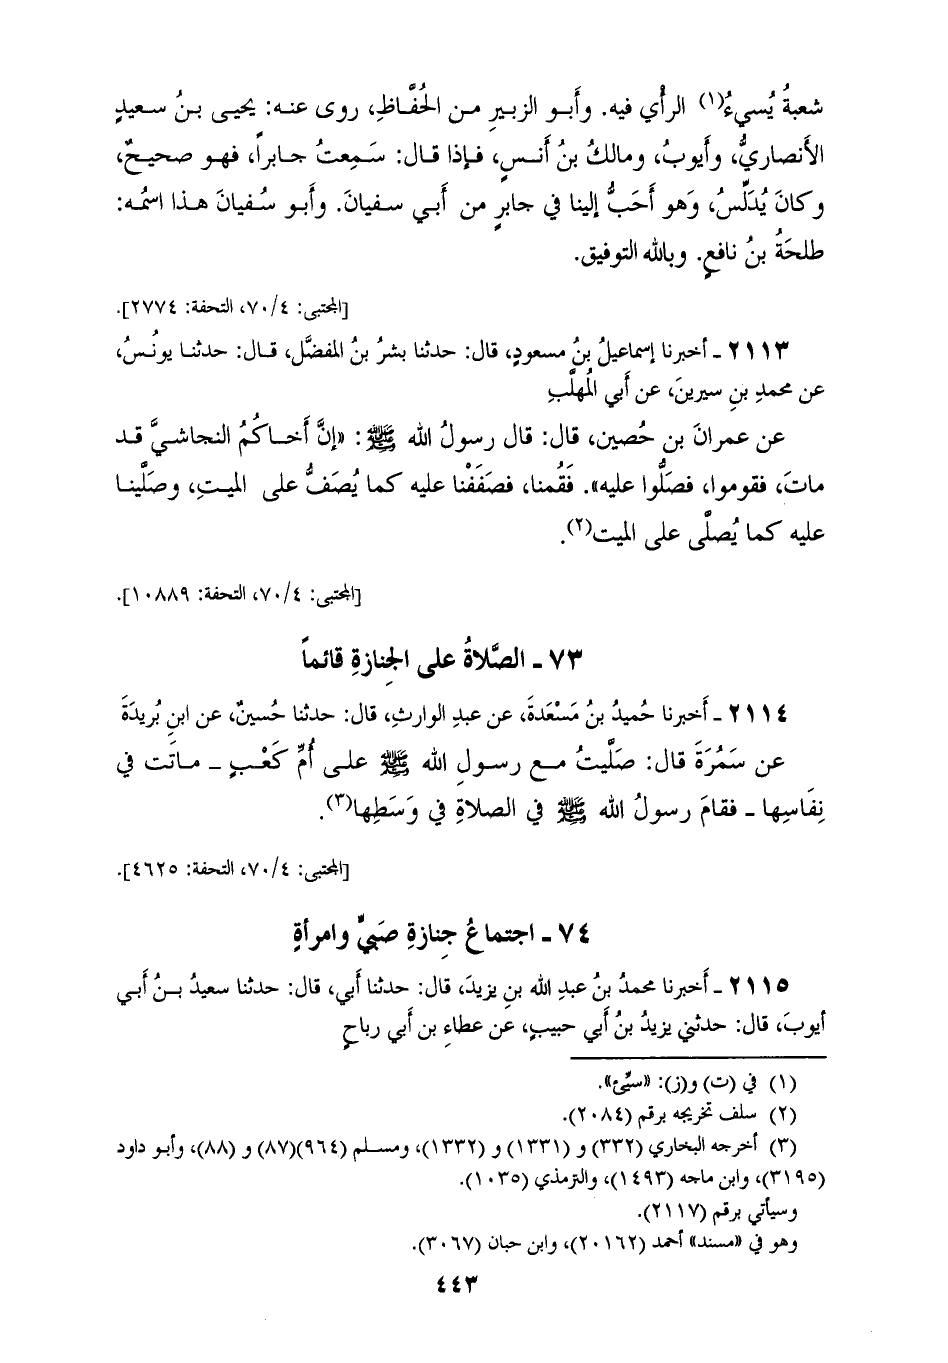 شعبةُ يُسيءُ(١) الرأي فيه. وأبو الزبيرِ من الحُفَّاظِ، روى عنه: يحيى بنُ سعيدٍ
الأنصاريُّ، وأيوبُ، ومالكُ بنُ أنسٍ، فإذا قال: سَمِعتُ جابراً، فهو صحيحٌ،
وكانَ يُدَلِّسُ، وَهو أَحَبُّ إلينا في جابرٍ من أبي سفيانَ. وأبو سُفيانَ هذا اسمُه:
طلحَةُ بنُ نافعٍ. وبالله التوفيق.
[المجتبى: ٧٠/٤، التحفة: ٢٧٧٤].
٢١١٣ - أخبرنا إسماعيلُ بنُ مسعودٍ، قال: حدثنا بشرُ بنُ المفضَّل، قال: حدثنا يونُسُ،
عن محمدِ بنِ سيرينَ، عن أبي المُهلَّبِ
عن عمرانَ بن حُصين، قال: قال رسولُ الله ﷺ: «إنَّ أَخاكُمُ النجاشيَّ قد
ماتَ، فقوموا، فصَلُّوا عليه». فَقُمنا، فصَفَفْنا عليه كما يُصَفُّ على الميتِ، وصَلَّينا
عليه كما يُصلَّى على الميت(٢).
[المجتبى: ٧٠/٤، التحفة: ١٠٨٨٩].
٧٣ - الصَّلاةُ على الجِنازةِ قائماً
٢١١٤ - أَخبرنا حُميدُ بنُ مَسْعَدةَ، عن عبدِ الوارثِ، قال: حدثنا حُسينٌ، عن ابنِ بُريدَةَ
عن سَمُرَةَ قال: صَلَّيتُ مع رسولِ الله ﷺ على أُمِّ كَعْبٍ - ماتَت في
نِفَاسِها - فقامَ رسولُ الله ﷺ في الصلاةِ في وَسَطِها(٣).
[المجتبى: ٧٠/٤، التحفة: ٤٦٢٥].
٧٤ - اجتماعُ جِنازةِ صَبيٍّ وامرأةٍ
٢١١٥ - أَخبرنا محمدُ بنُ عبدِ الله بنِ يزيدَ، قال: حدثنا أبي، قال: حدثنا سعيدُ بنُ أبي
أيوبَ، قال: حدثني يزيدُ بنُ أبي حبيبٍ، عن عطاءِ بن أبي رباحٍ
(١) في (ت) و(ز): «سيِّئ».
(٢) سلف تخريجه برقم (٢٠٨٤).
(٣) أخرجه البخاري (٣٣٢) و (١٣٣١) و (١٣٣٢)، ومسلم (٩٦٤)(٨٧) و (٨٨)، وأبو داود
(٣١٩٥)، وابن ماجه (١٤٩٣)، والترمذي (١٠٣٥).
وسيأتي برقم (٢١١٧).
وهو في «مسند» أحمد (٢٠١٦٢)، وابن حبان (٣٠٦٧).
٤٤٣